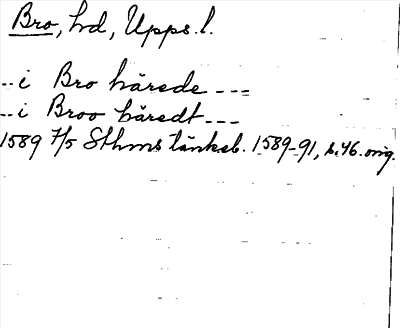 Bro, hd, Upps. l.
..i Bro härede ---
..i Broo häredt ---
1589 7/5 Sthms tänkeb. 1589-91, s. 46. orig.